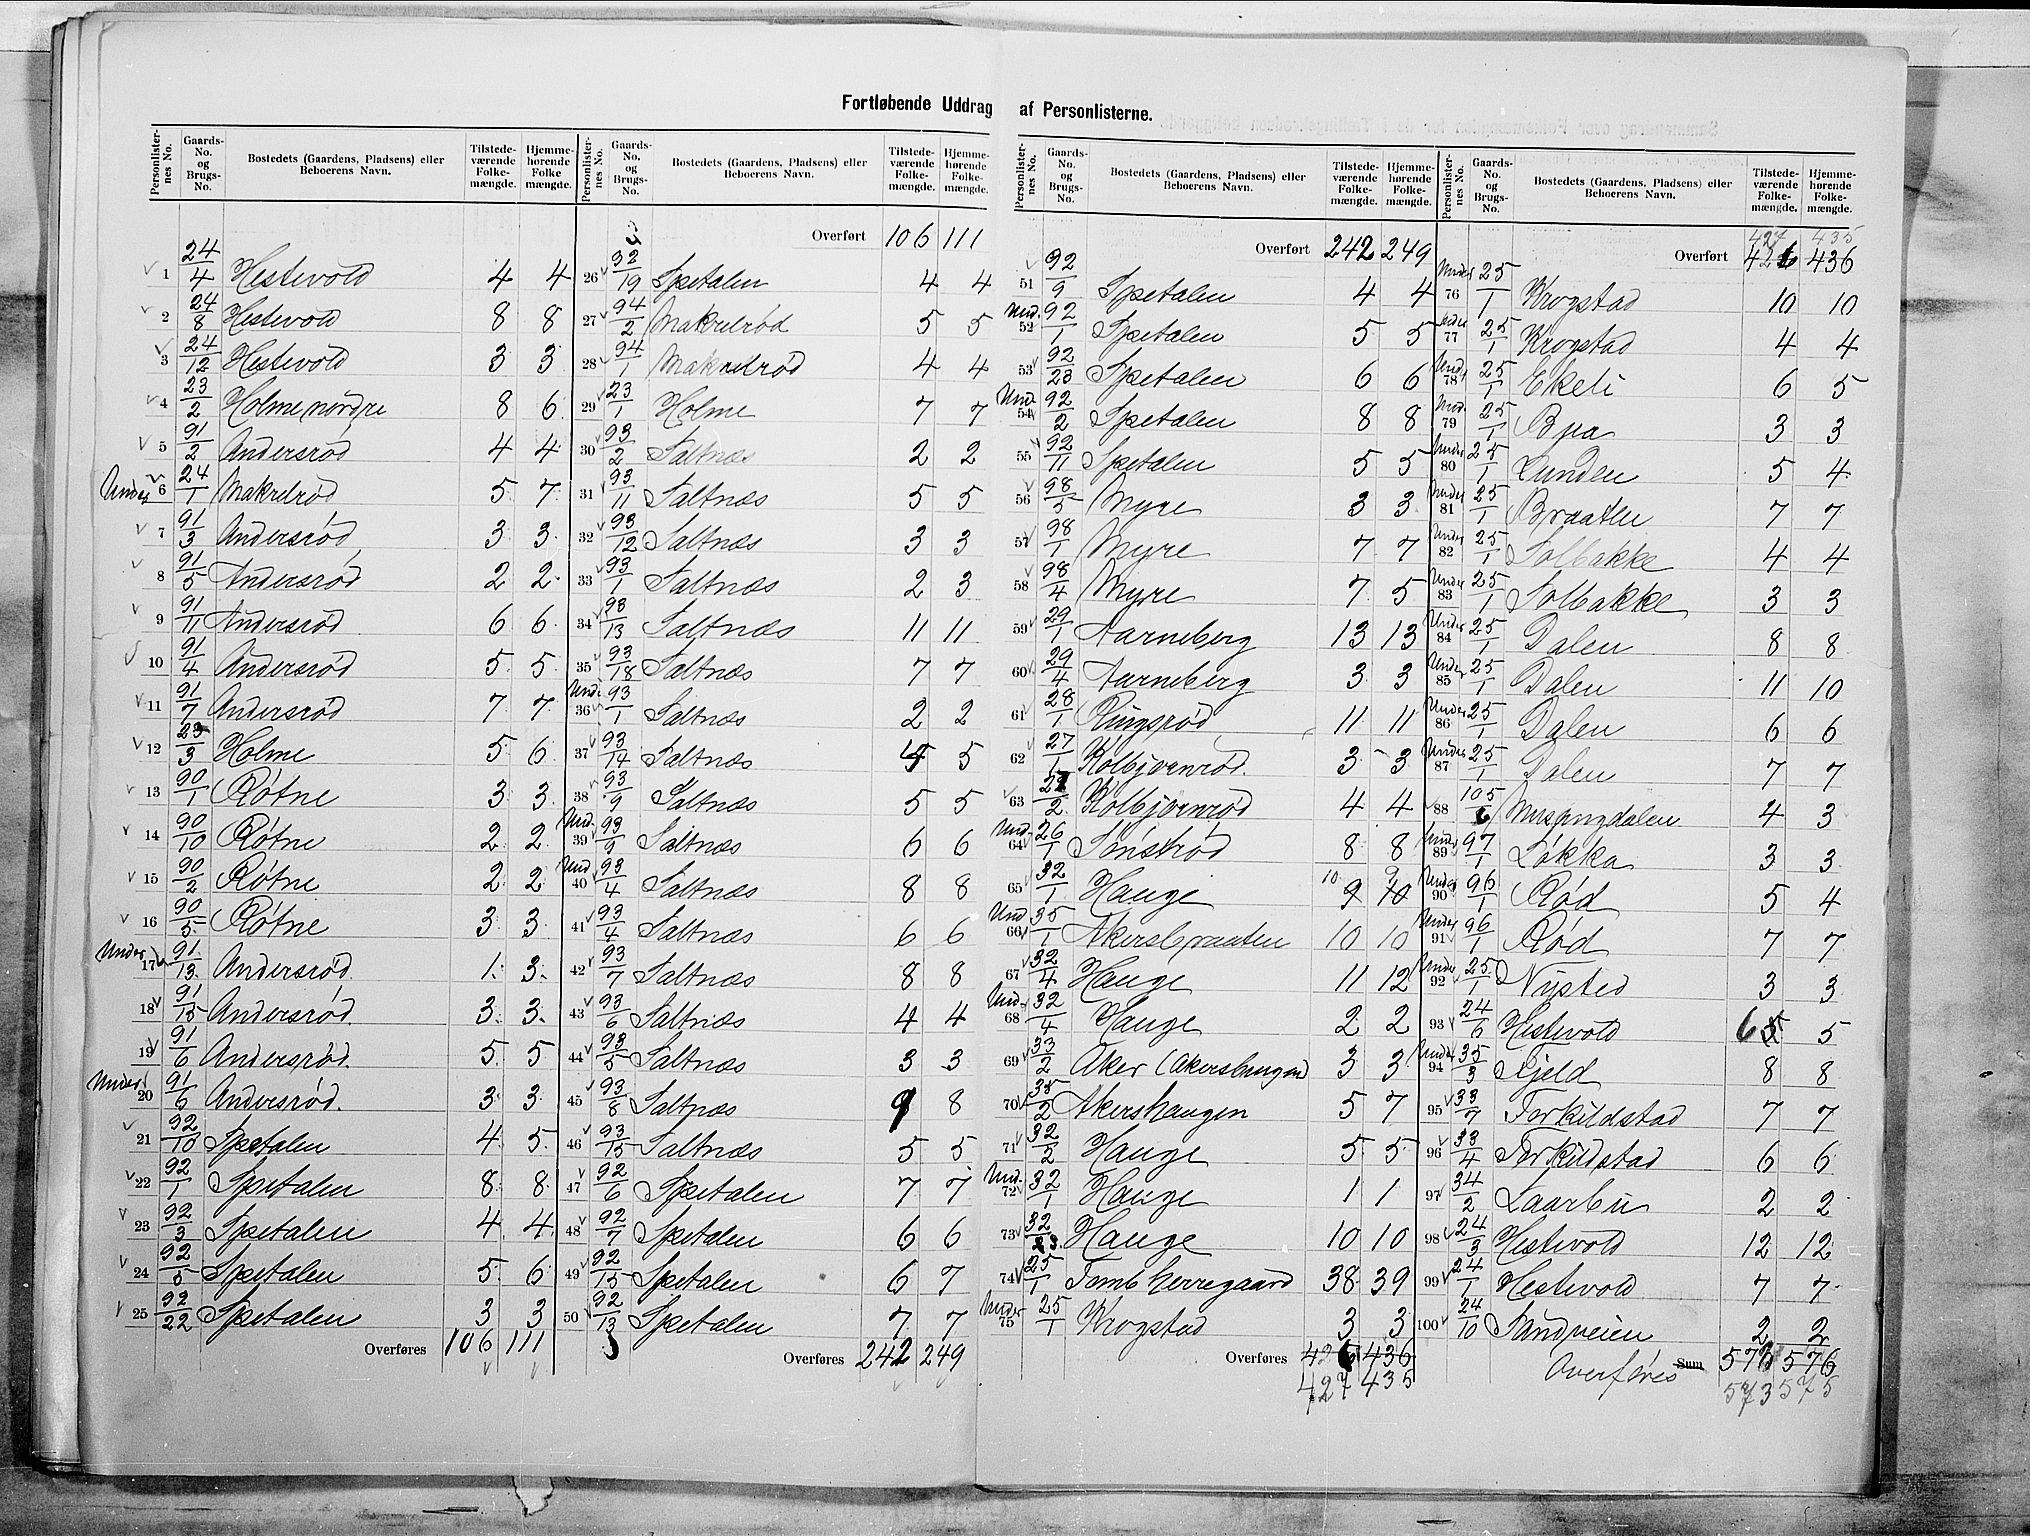 Fortløbende Uddrag af Personlisterne.
Personlister-nes No. | Gaards-No. og Brugs-No. | Bostedets (Gaardens, Pladsens) eller Beboerens Navn. | Tilstede-værende Folke-mængde. | Hjemme-hørende Folke mængde.
1 24/4 Hestevold 4 4
2 24/8 Hestevold 8 8
3 24/12 Hestevold 3 3
4 23/2 Holme nordre 8 6
5 91/2 Andersrød 4 4
Under 6 24/1 Makrelrød 5 7
7 91/3 Andersrød 3 3
8 91/5 Andersrød 2 2
9 91/11 Andersrød 6 6
10 91/4 Andersrød 5 5
11 91/7 Andersrød 7 7
12 23/3 Holme 5 6
13 90/1 Røtne 3 3
14 90/10 Røtne 2 2
15 90/2 Røtne 2 2
16 90/5 Røtne 3 3
Under 17 91/13 Andersrød 1 3
18 91/15 Andersrød 3 3
19 91/6 Andersrød 5 5
Under 20 91/6 Andersrød 3 3
21 92/10 Spetalen 4 5
22 92/1 Spetalen 8 8
23 92/3 Spetalen 4 4
24 92/5 Spetalen 5 6
25 92/22 Spetalen 3 3
Overføres 106 111
Personlister-nes No. | Gaards-No. og Brugs-No. | Bostedets (Gaardens, Pladsens) eller Beboerens Navn. | Tilstede-værende Folke-mængde. | Hjemme-hørende Folke-mængde.
Overført 106 111
26 92/19 Spetalen 4 4
27 94/2 Makrelrød 5 5
28 94/1 Makrelrød 4 4
29 23/1 Holme 7 7
30 93/2 Saltnæs 2 2
31 93/11 Saltnæs 5 5
32 93/12 Saltnæs 3 3
33 93/1 Saltnæs 2 3
34 93/13 Saltnæs 11 11
35 93/18 Saltnæs 7 7
Und. 36 93/1 Saltnæs 2 2
37 93/14 Saltnæs 5
38 93/9 Saltnæs 5 5
Und. 39 93/9 Saltnæs 6 6
Und 40 93/4 Saltnæs 8 8
41 93/4 Saltnæs 6 6
42 93/7 Saltnæs 8 8
43 93/6 Saltnæs 4 4
44 93/5 Saltnæs 3 3
45 93/8 Saltnæs 9 8
46 93/15 Saltnæs 5 5
47 92/6 Spetalen 7 7
48 92/7 Spetalen 6 6
49 92/15 Spetalen 6 7
50 92/13 Spetalen 7 7
Overføres 242 249
Personlister-nes No. | Gaards-No. og Brugs-No. | Bostedets (Gaardens, Pladsens) eller Beboerens Navn. | Tilstede-værende Folke-mængde. | Hjemme-hørende Folke-mængde.
Overført 242 249
51 92/9 Spetalen 4 4
Und. 52 92/1 Spetalen 5 5
53 92/23 Spetalen 6 6
Und. 54 92/2 Spetalen 8 8
55 92/11 Spetalen 5 5
56 98/5 Myre 3 3
57 98/1 Myre 7 7
58 98/4 Myre 7 5
59 29/1 Aarneberg 13 13
60 29/4 Aarneberg 3 3
61 28/1 Ringsrød 11 11
62 27/1 Kolbjørnrød 3 3
63 27/2 Kolbjørnrød 4 4
Und. 64 26/1 Sønstrød 8 8
65 32/1 Hauge 10 9 9 10
Und 66 35/1 Akersbraaten 10 10
67 32/4 Hauge 11 12
Und. 68 32/4 Hauge 2 2
69 33/2 Aker (Akershaugen) 3 3
70 35/2 Akershaugen 5 7
71 32/2 Hauge 5 5
Und. 72 32/1 Hauge 1 1
73 32/23 Hauge 10 10
74 25/1 Tomb herregaard 38 39
Under 75 25/1 Krogstad 3 3
Overføres 426 436
427 435
Personlister-nes No. | Gaards-No. og Brugs-No. | Bostedets (Gaardens, Pladsens) eller Beboerens Navn. | Tilstede-værende Folke-mængde. | Hjemme-hørende Folke-mængde.
427 435
Overført 426 436
Under 76 25/1 Krogstad 10 10
Under 77 25/1 Krogstad 4 4
Und. 78 25/1 Ekeli 6 5
Und. 79 25/1 Bjia 3 3
Under 80 25/1 Lunden 5 4
Under 81 25/1 Braaten 7 7
Under 82 25/1 Solbakke 4 4
Under 83 25/1 Solbakke 3 3
Under 84 25/1 Dalen 8 8
Under 85 25/1 Dalen 11 10
Under 86 25/1 Dalen 6 6
Under 87 25/1 Dalen 7 7
88 105/6 4 3
Under 89 97/1 Løkka 3 3
Under 90 96/1 Rød 5 4
Under 91 96/1 Rød 7 7
Under 92 25/1 Nysted 3 3
93 24/6 Hestevold 6 5 5
Under 94 35/3 Kjeld 8 8
95 33/7 Torkildstad 7 7
96 33/4 Torkildstad 6 6
97 34/2 Laarbu 2 2
98 24/3 Hestevold 12 12
99 24/1 Hestevold 7 7
100 24/10 Sandveien 2 2
Overføres Sum 572 576
573 575